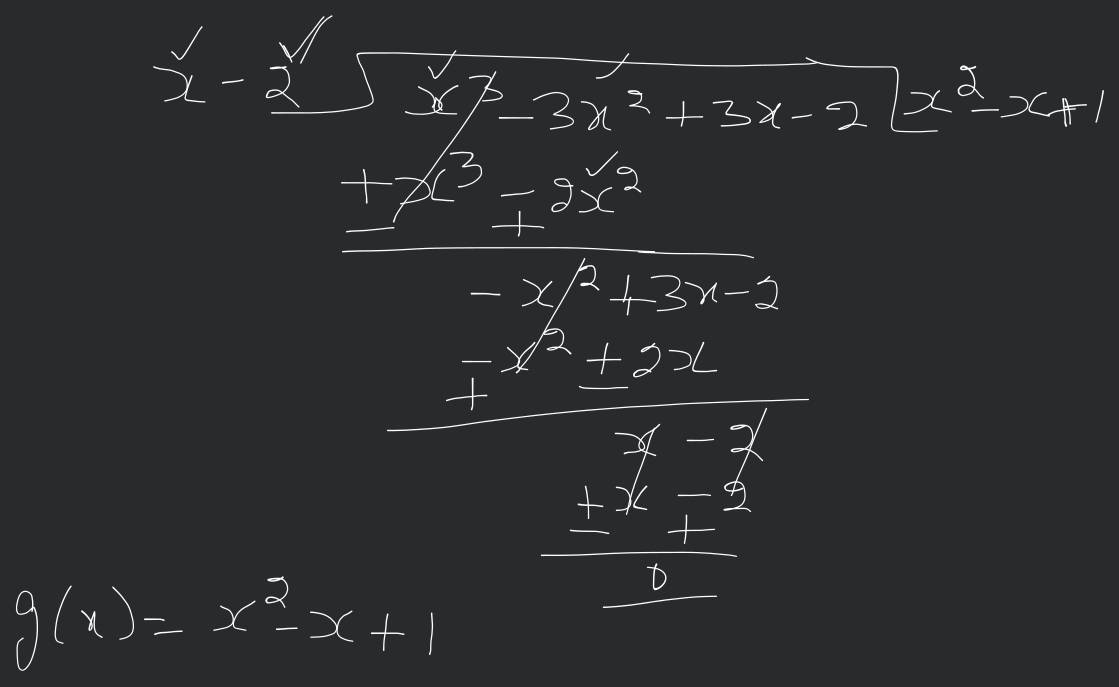 x - 2 x³ - 3x² + 3x - 2 x² - x + 1
+ x³ - 2x²
- +
- x² + 3x - 2
- x² + 2x
+ -
x - 2
+ x - 2
- +
0
g(x) = x² - x + 1